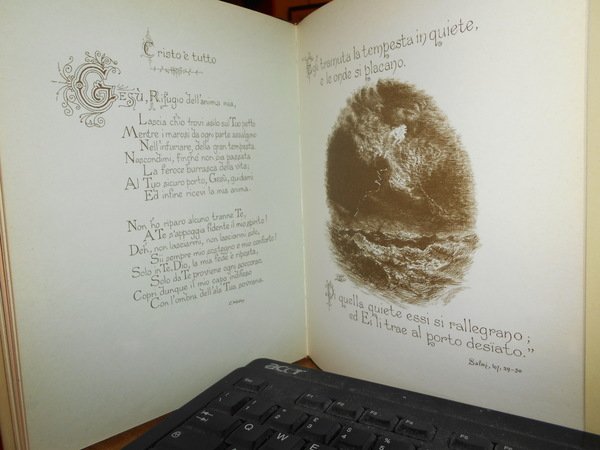 Cristo è tutto
Gesù, Rifugio dell'anima mia,
Lascia ch'io trovi asilo sul Tuo petto
Mentre i marosi da ogni parte assalgono
Nell'infuriare della gran tempesta.
Nascondimi, finchè non sia passata
La feroce burrasca della vita;
Al Tuo sicuro porto, Gesù, guidami
Ed infine ricevi la mia anima.
Non ho riparo alcuno tranne Te,
A Te s'appoggia fidente il mio spirito!
Deh, non lasciarmi, non lasciarmi solo,
Sii sempre mio sostegno e mio conforto!
Solo in Te, Dio, la mia fede è riposta,
Solo da Te proviene ogni soccorso.
Copri dunque il mio capo indifeso
Con l'ombra dell'ala Tua sovrana.
Ei tramuta la tempesta in quiete,
e le onde si placano.
Di quella quiete essi si rallegrano;
ed Ei li trae al porto desiato."
Salmi, 107, 29-30
acer
Q
W
E